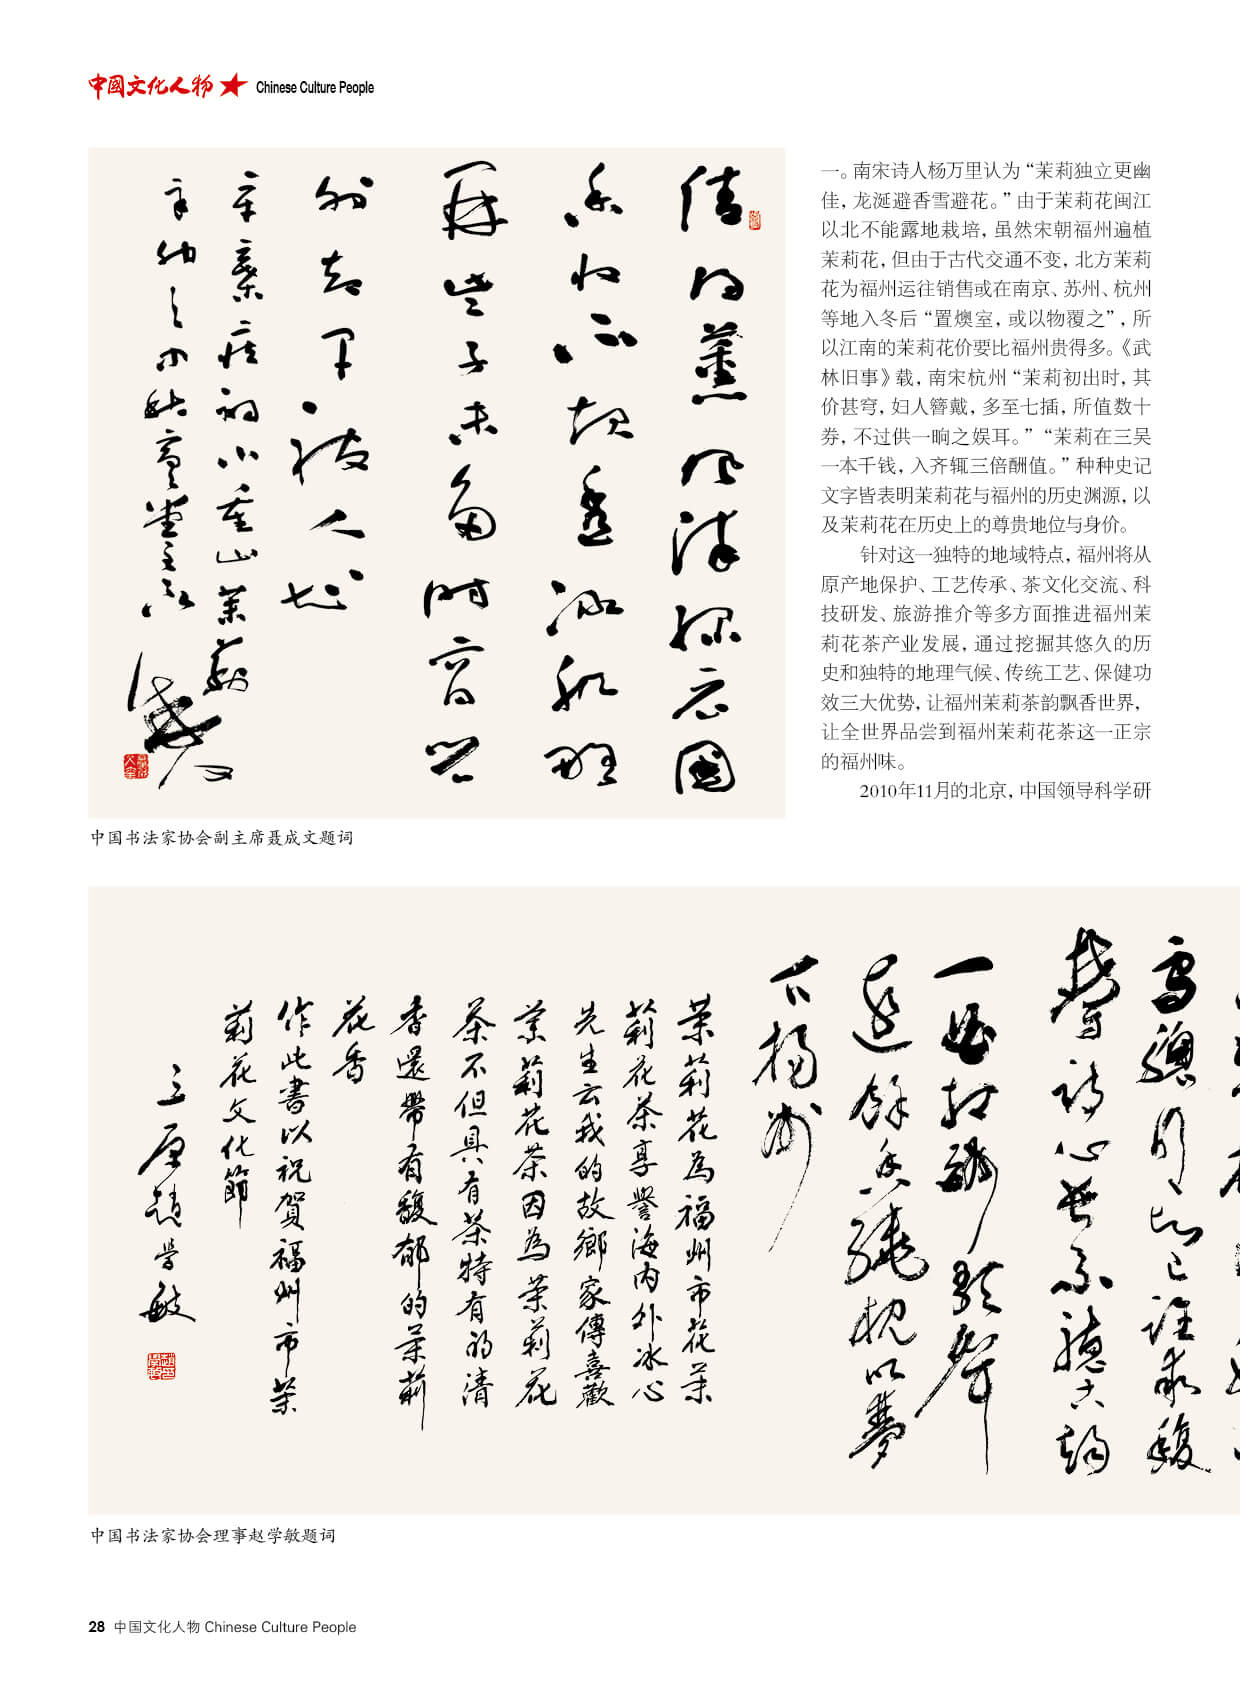 中國文化人物 ★ Chinese Culture People
倩得薰風染綠衣國
香收不起透冰肌略
開些子未多時窗兒
外却早被人知
辛棄疾詞小重山茉莉
中国书法家协会副主席聂成文题词
一。南宋诗人杨万里认为“茉莉独立更幽
佳，龙涎避香雪避花。”由于茉莉花闽江
以北不能露地栽培，虽然宋朝福州遍植
茉莉花，但由于古代交通不变，北方茉莉
花为福州运往销售或在南京、苏州、杭州
等地入冬后“置燠室，或以物覆之”，所
以江南的茉莉花价要比福州贵得多。《武
林旧事》载，南宋杭州“茉莉初出时，其
价甚穹，妇人簪戴，多至七插，所值数十
券，不过供一晌之娱耳。”“茉莉在三吴
一本千钱，入齐辄三倍酬值。”种种史记
文字皆表明茉莉花与福州的历史渊源，以
及茉莉花在历史上的尊贵地位与身价。
针对这一独特的地域特点，福州将从
原产地保护、工艺传承、茶文化交流、科
技研发、旅游推介等多方面推进福州茉
莉花茶产业发展，通过挖掘其悠久的历
史和独特的地理气候、传统工艺、保健功
效三大优势，让福州茉莉茶韵飘香世界，
让全世界品尝到福州茉莉花茶这一正宗
的福州味。
2010年11月的北京，中国领导科学研
餘香繞枕以夢
下揚州
茉莉花為福州市花茉
莉花茶享譽海內外冰心
先生云我的故鄉家傳喜歡
茉莉花茶因為茉莉花
茶不但具有茶特有的清
香還帶有馥郁的茉莉
花香
作此書以祝賀福州市茉
莉花文化節
三原趙學敏
中国书法家协会理事赵学敏题词
28 中国文化人物 Chinese Culture People